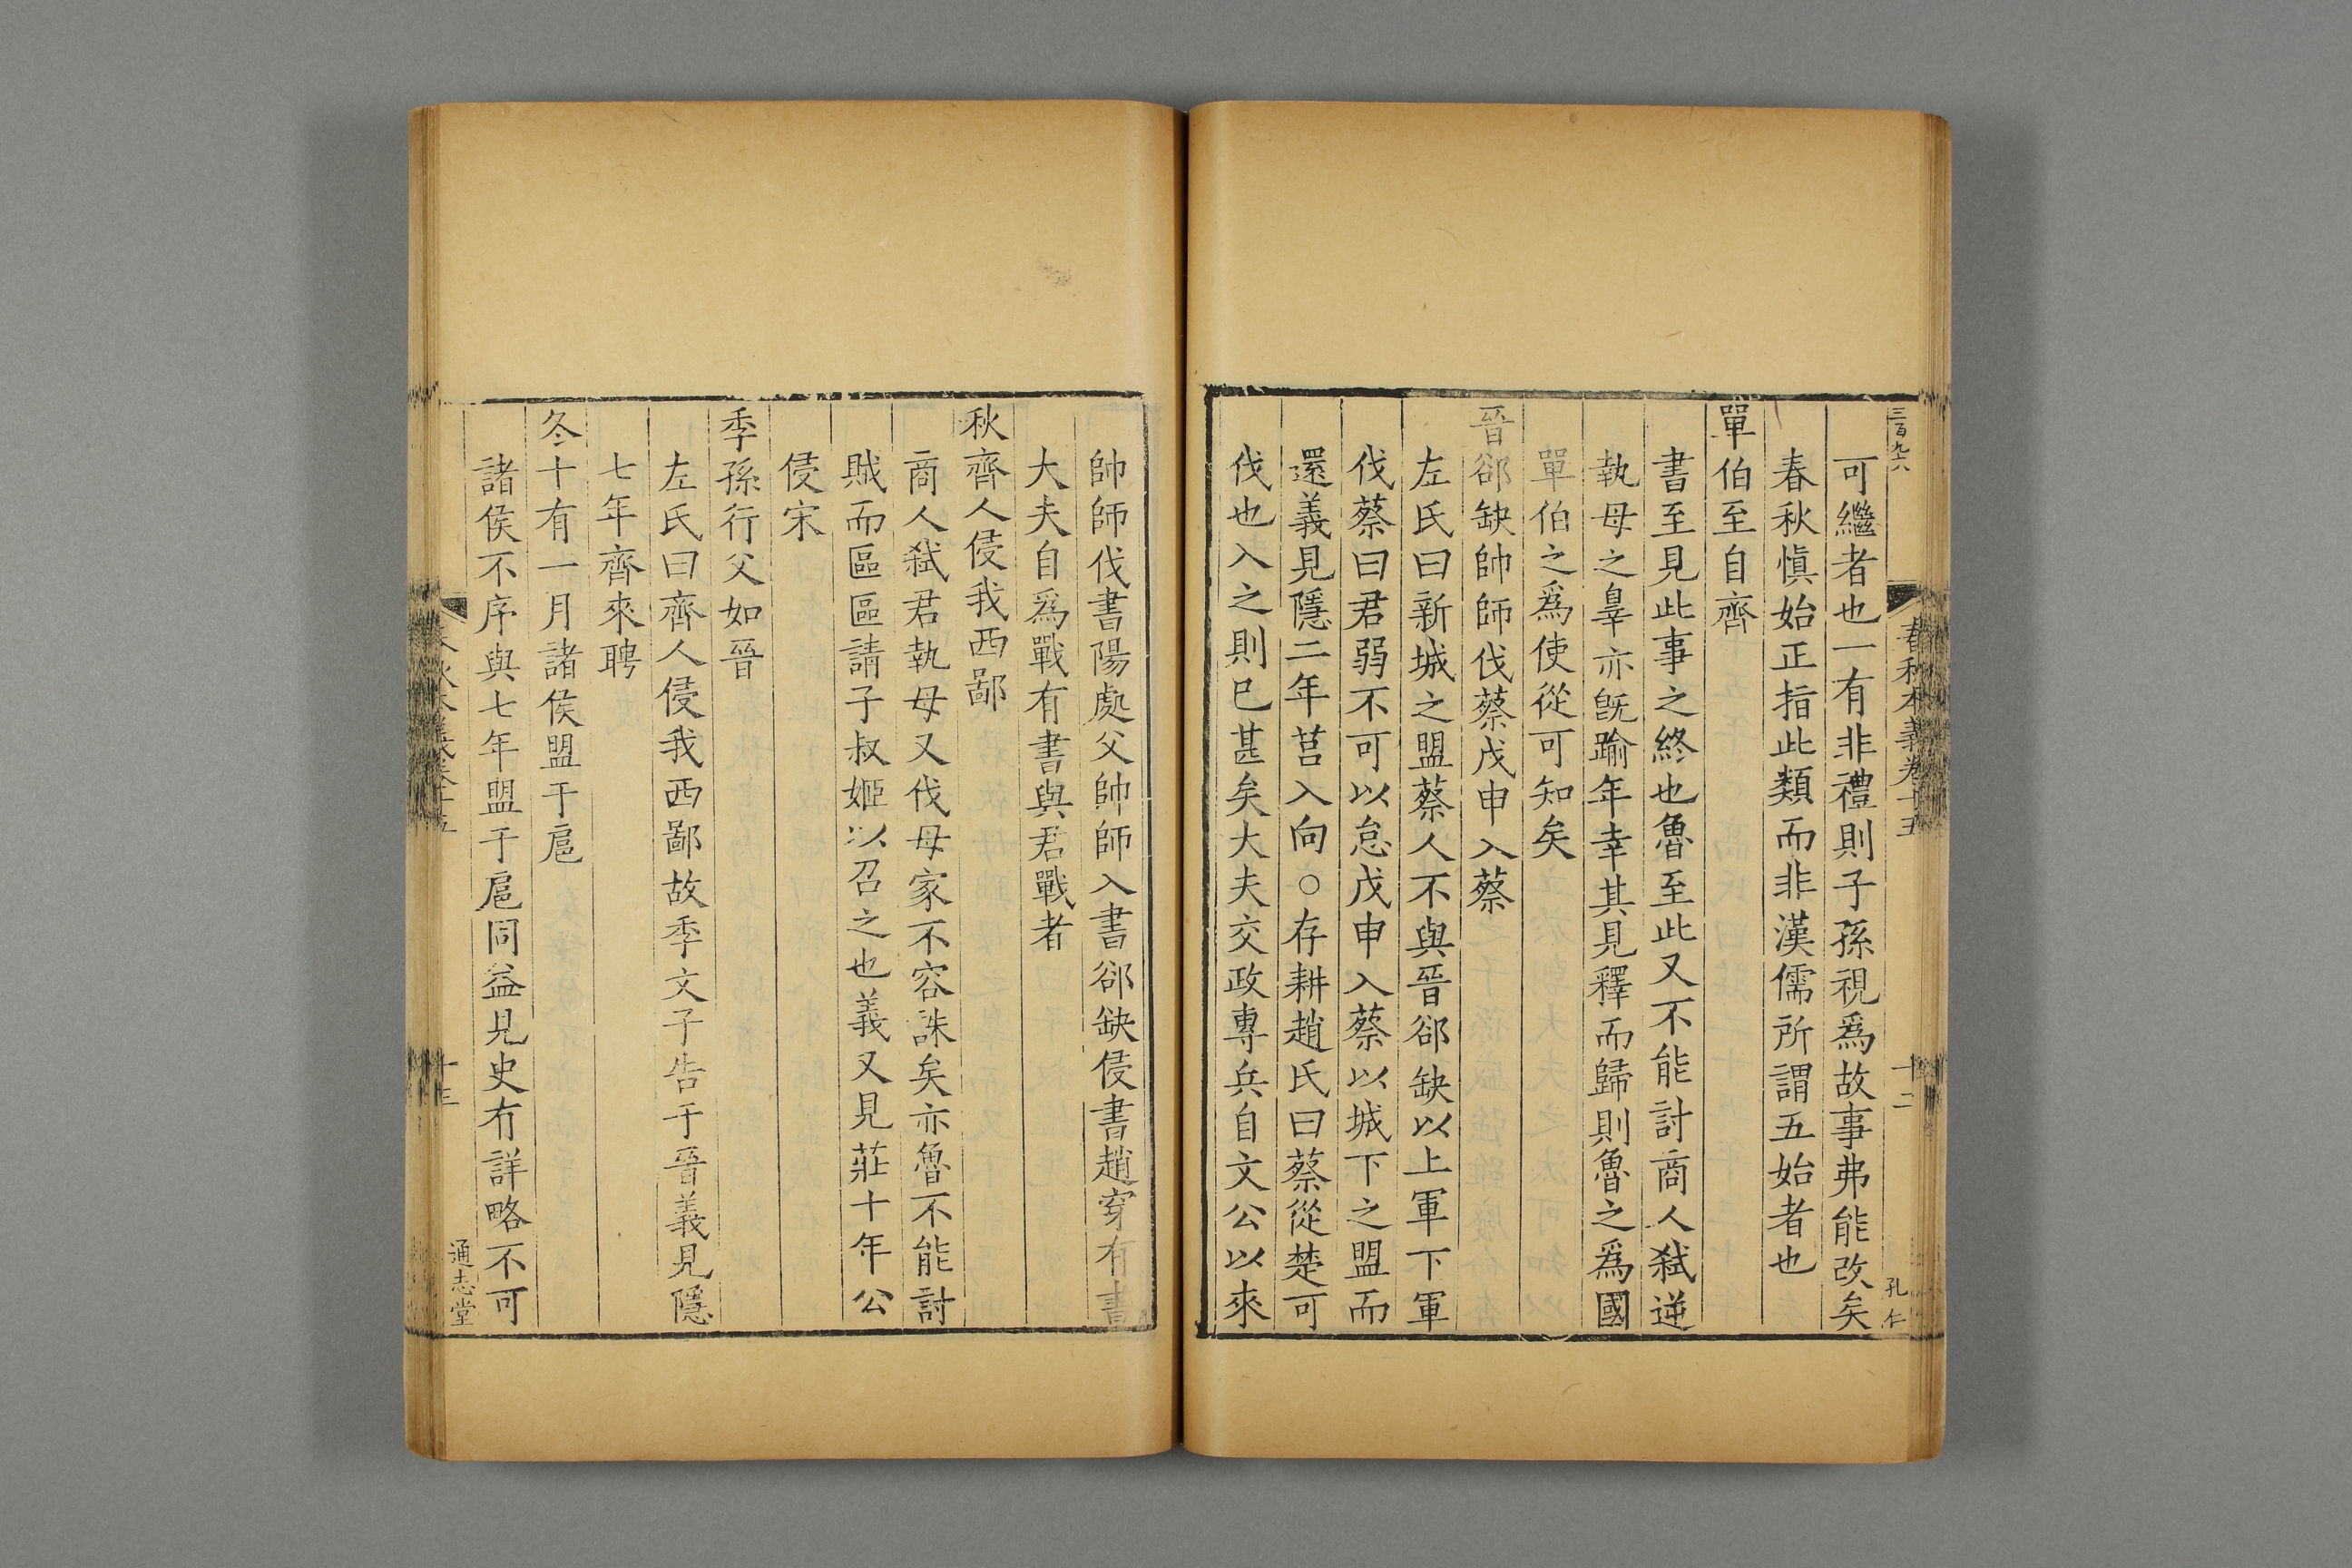 三百九六
春秋本義卷十五
十二
孔仁
可繼者也一有非禮則子孫視爲故事弗能改矣
春秋愼始正指此類而非漢儒所謂五始者也
單伯至自齊
書至見此事之終也魯至此又不能討商人弑逆
執母之辠亦旣踰年幸其見釋而歸則魯之爲國
單伯之爲使從可知矣
晉郤缺帥師伐蔡戊申入蔡
左氏曰新城之盟蔡人不與晉郤缺以上軍下軍
伐蔡曰君弱不可以怠戊申入蔡以城下之盟而
還義見隱二年莒入向○存耕趙氏曰蔡從楚可
伐也入之則已甚矣大夫交政專兵自文公以來
帥師伐書陽處父帥師入書郤缺侵書趙穿有書
大夫自爲戰有書與君戰者
秋齊人侵我西鄙
商人弑君執母又伐母家不容誅矣亦魯不能討
賊而區區請子叔姬以召之也義又見莊十年公
侵宋
季孫行父如晉
左氏曰齊人侵我西鄙故季文子告于晉義見隱
七年齊來聘
冬十有一月諸侯盟于扈
諸侯不序與七年盟于扈同益見史有詳略不可
春秋本義卷十五
十三
通志堂